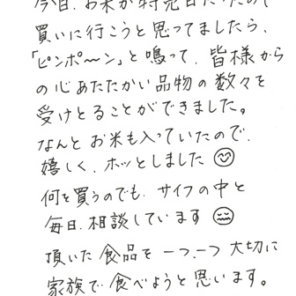 今日、お米が特売日だったので
買いに行こうと思ってましたら、
「ピンポ〜ン」と鳴って、皆様から
の心あたたかい品物の数々を
受けとることができました。
なんとお米も入っていたので、
嬉しく、ホッとしました
何を買うのでも、サイフの中と
毎日、相談しています
頂いた食品を一つ、一つ大切に
家族で食べようと思います。